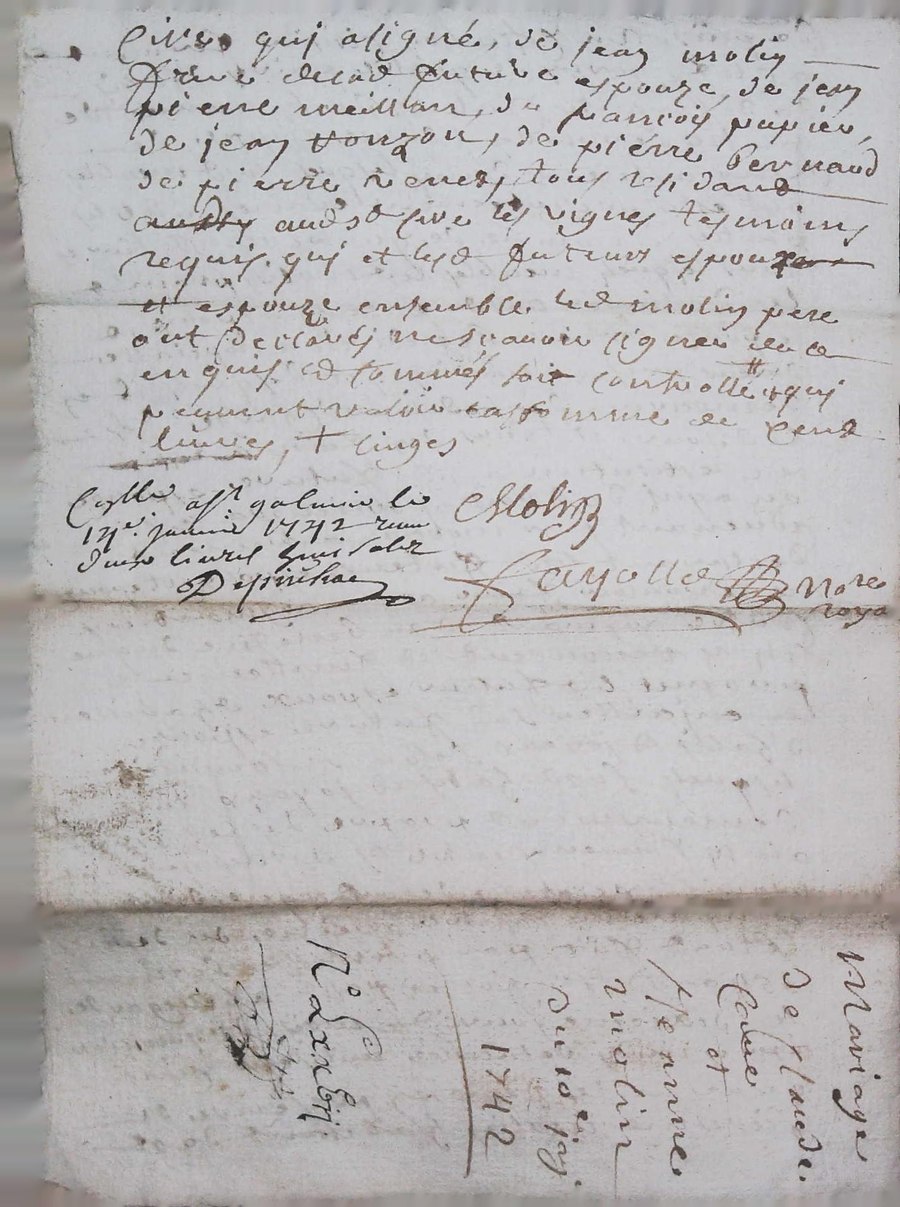 qui a signé, de jean molin
frere de lad future espouze, de jean
pierre meillan, de françois papier,
de jean tonzon, de pierre bernaud
de pierre tous residant
aud st sixe les vignes tesmoins
requis. qui et lesd futeurs espoux
et espouze ensemble led molin pere
ont declarés ne scavoir signer de ce
enquis et sommés soit controllé qui
peuvent valoir la somme de cent
livres, + linges
Collé a st galmier le
14e. janvier 1742 receu
deux livres huit solz
Despinhac
Molin
fayolle nore
roya
Mariage
De Claude
Coue
et
Jeanne
molin
Du 10e jan
1742
n°